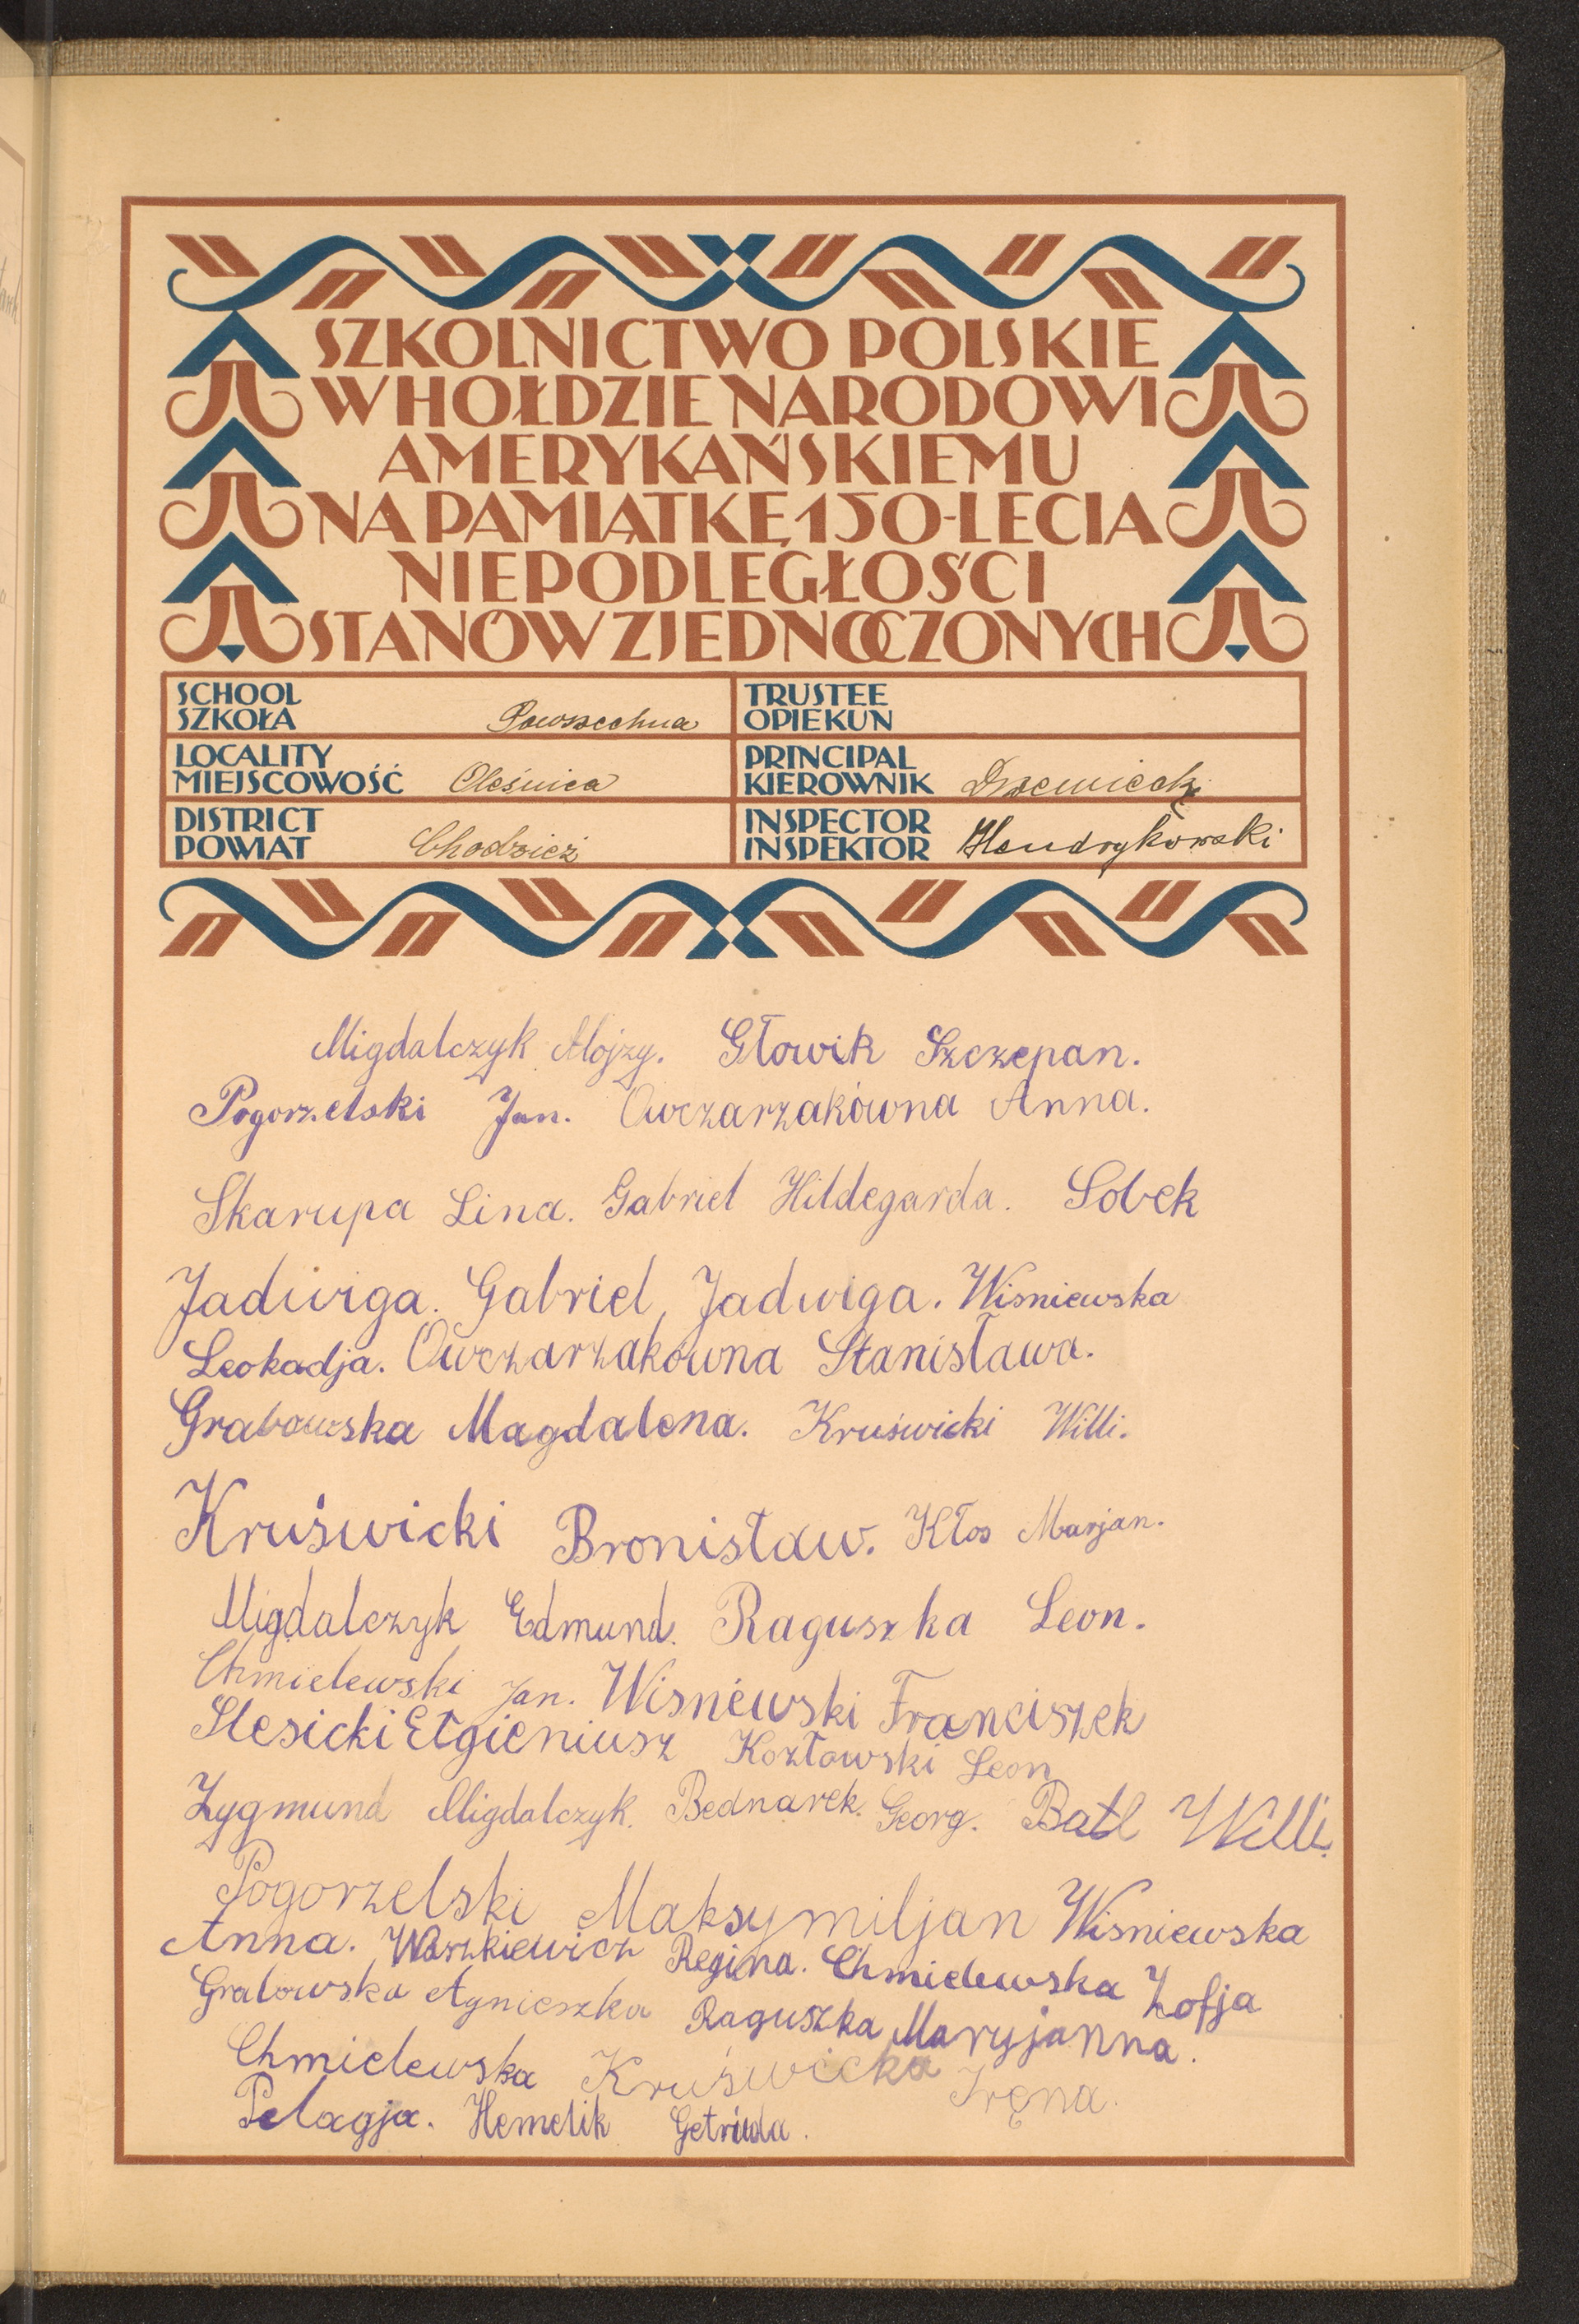 SZKOLNICTWO POLSKIE
W HOŁDZIE NARODOWI
AMERYKAŃSKIEMU
NA PAMIĄTKĘ 150-LECIA
NIEPODLEGŁOŚCI
STANÓW ZJEDNOCZONYCH
SCHOOL
SZKOŁA Powszechna
TRUSTEE
OPIEKUN
LOCALITY
MIEJSCOWOŚĆ Oleśnica
PRINCIPAL
KIEROWNIK Drzewiecki
DISTRICT
POWIAT Chodzież
INSPECTOR
INSPEKTOR Hendrykowski
Migdalczyk Alojzy. Głowik Szczepan.
Pogorzelski Jan. Owczarzakówna Anna.
Skarupa Lina. Gabriel Hildegarda. Sobek
Jadwiga. Gabriel Jadwiga. Wisniewska
Leokadja. Owczarzakówna Stanisława.
Grabowska Magdalena. Kruświcki Willi.
Kruświcki Bronisław. Kłos Marjan.
Migdalczyk Edmund. Raguszka Leon.
Chmielewski Jan. Wisniewski Franciszek
Slesicki Elgieniusz Kozłowski Leon
Zygmund Migdalczyk. Bednarek. Georg. Batl Willi.
Pogorzelski Maksymiljan Wisniewska
Anna. Warzkiewicz Regina. Chmielewska Zofja
Grabowska Agnieszka Raguszka Maryjanna.
Chmielewska Kruświcka Irena.
Pelagja. Hemelik Getruda.